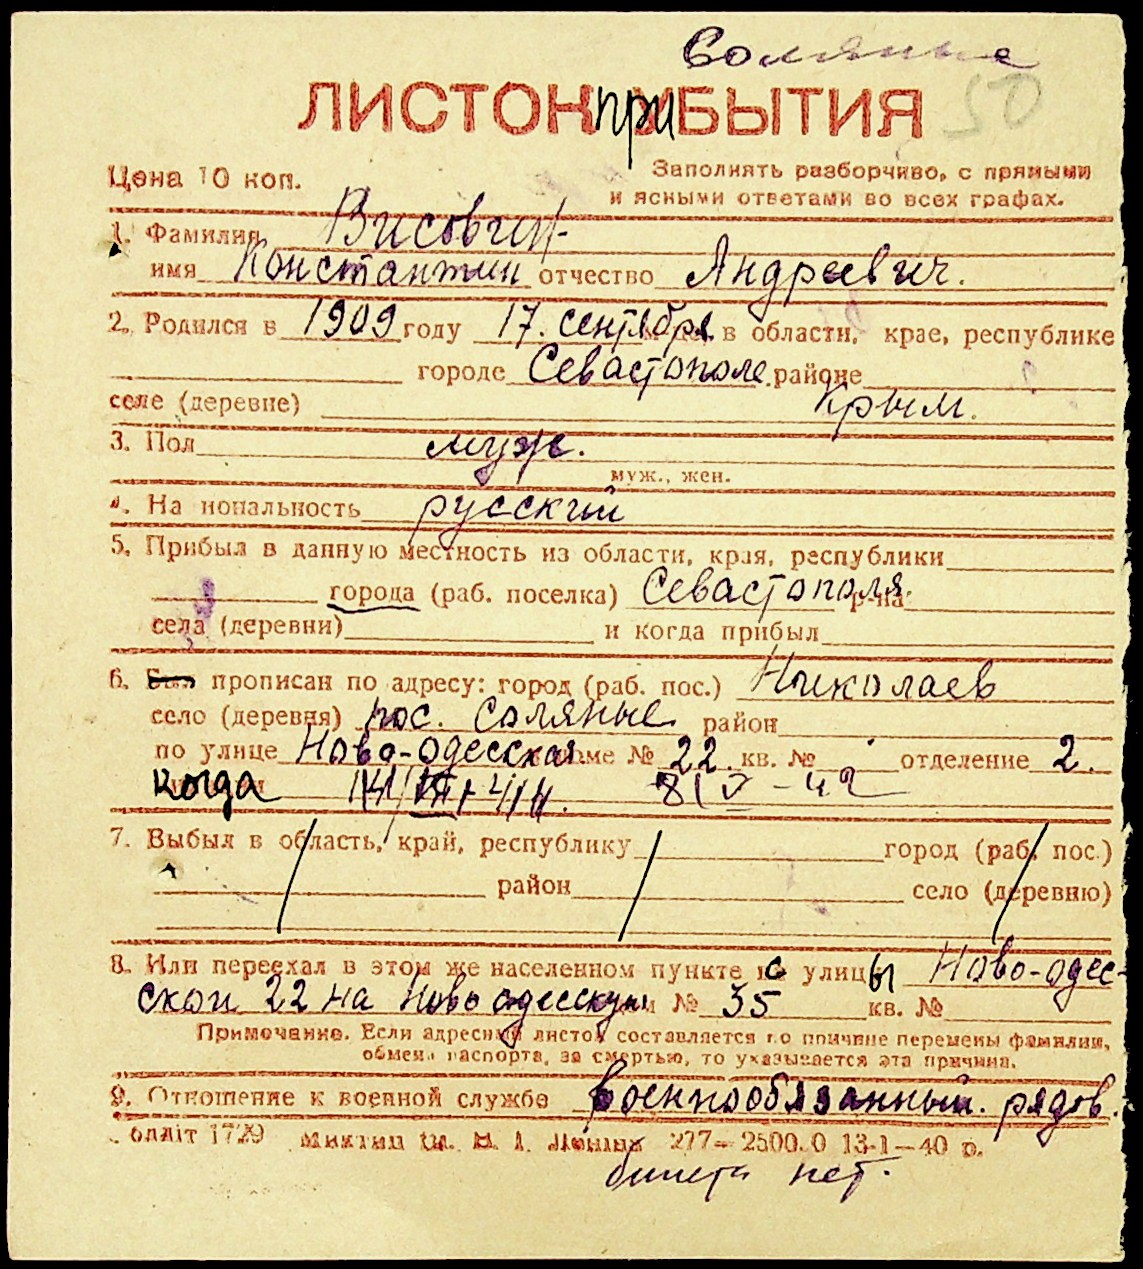 Соляные
ЛИСТОК приБЫТИЯ 50
Цена 10 коп. Заполнять разборчиво, с прямыми
и ясными ответами во всех графах.
1. Фамилия Висовгин
имя Константин отчество Андреевич.
2. Родился в 1909 году 17. сентября в области, крае, республике
городе Севастополе районе
Крым.
селе (деревне)
3. Пол муж.
муж., жен.
4. На иональность русский
5. Прибыл в данную местность из области, края, республики
города (раб. поселка) Севастополя. р-на
села (деревни) и когда прибыл
6. прописан по адресу: город (раб. пос.) Николаев
село (деревня) пос. Соляные район
по улице Ново-одесская доме № 22. кв. № отделение 2.
когда 8/V-42
7. Выбыл в область, край, республику город (раб. пос.)
район село (деревню)
8. Или переехал в этом же населенном пункте с улицы Ново-одес-
ской 22 на Ново одесскую № 35 кв. №
Примечание. Если адресный листок составляется по причине перемены фамилии,
обмена паспорта, за смертью, то указывается эта причина.
9. Отношение к военной службе военнообязанный. рядов.
олліт 1729 277-2500.0 13-1-40 р.
билета нет.